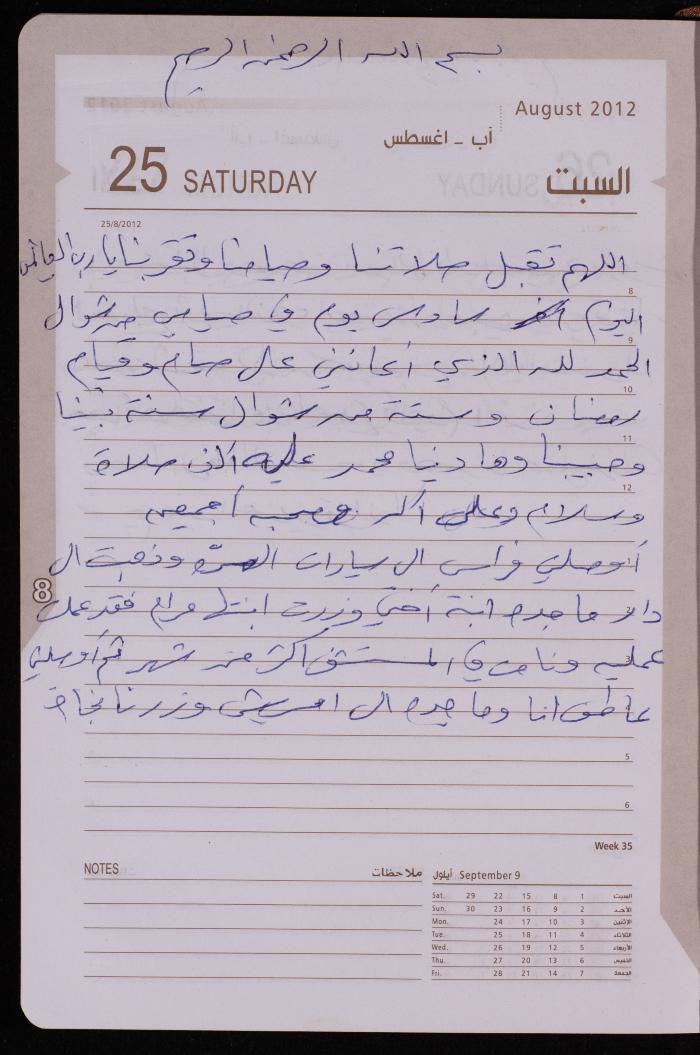 بسم الله الرحمن الرحيم
August 2012
آب - اغسطس
25 SATURDAY السبت
25/8/2012
اللهم تقبل صلاتنا وصيامنا وتقربنا يا رب العالمين
8
اليوم سادس يوم في صيامي من شوال
9
الحمد لله الذي أعانني على صيام وقيام
10
رمضان وستة من شوال سنة نبينا
11
وحبيبنا وهادينا محمد عليه ألف صلاة
12
وسلام وعلى آله وصحبه أجمعين
أوصلني فراس الى سيارات وذهبت الى
8
دار ماجده ابنة أختي وزرت ابنتها مرام فقد عملت
عملية ونامت في المستشفى اكثر من شهر ثم أوصلني
عاطف انا وماجده الى وزرنا نجاة
5
6
Week 35
NOTES ملاحظات
أيلول September 9
Sat. 29 22 15 8 1 السبت
Sun. 30 23 16 9 2 الأحد
Mon. 24 17 10 3 الإثنين
Tue. 25 18 11 4 الثلاثاء
Wed. 26 19 12 5 الأربعاء
Thu. 27 20 13 6 الخميس
Fri. 28 21 14 7 الجمعة